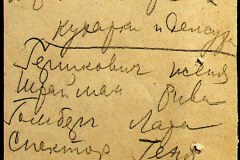 кухарки и
Гершкович
Шрайман Рива
Гомберг Лара
Спектор Геня